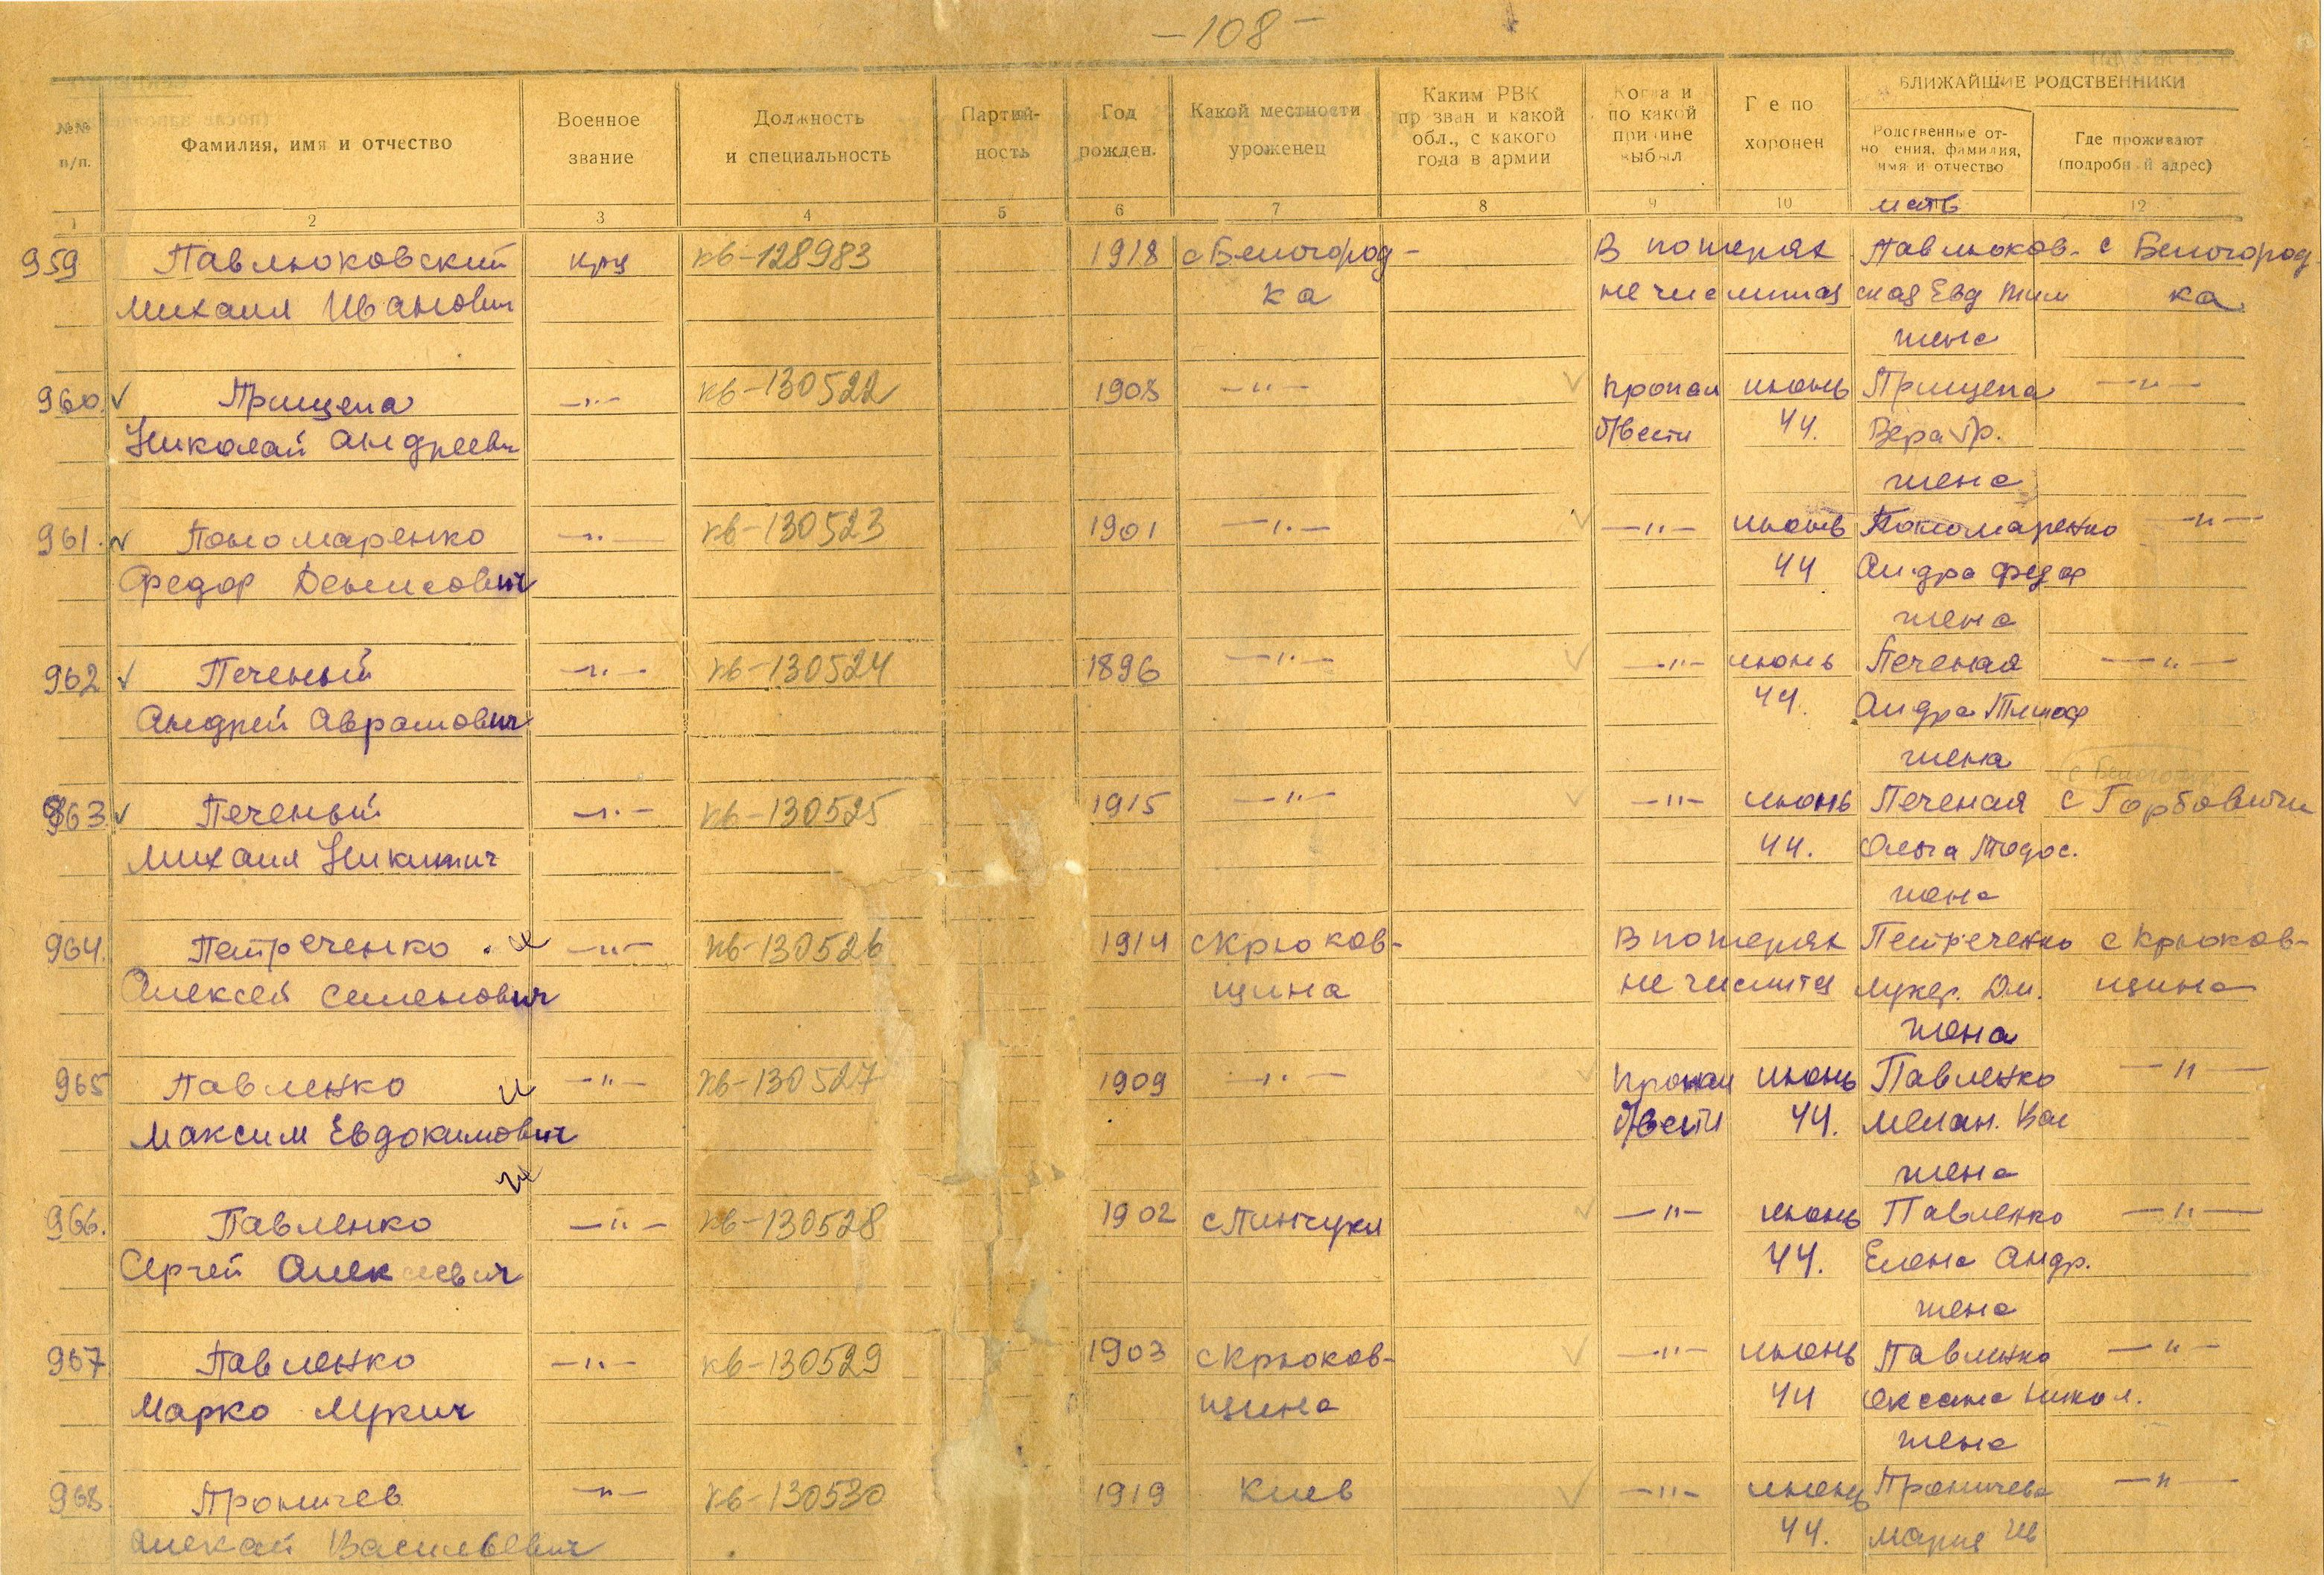 — 108 —
БЛИЖАЙШИЕ РОДСТВЕННИКИ
№№ п/п.
Фамилия, имя и отчество
Военное звание
Должность и специальность
Партий- ность
Год рожден.
Какой местности уроженец
Каким РВК пр зван и какой обл., с какого года в армии
Ко а и по какой при ине выб л
Г е по хоронен
Родственные от- но ения, фамилия, имя и отчество
Где проживают (подробн й адрес)
1 2 3 4 5 6 7 8 9 10 12
мать
959 Павлюковский кр-ц кв-128983 1918 с Белогород- В потерях Павлюков- с Белогород
Михаил Иванович ка не числится ская Евд Тим ка
жена
960. Прищепа —"— кв-130522 1908 —"— пропал июнь Прищепа —"—
Николай Андреевич б/вести 44. Вера Гр.
жена
961. Пономаренко —"— кв-130523 1901 —"— —"— июнь Пономаренко —"—
Федор Денисович 44 Федор
жена
962 Печеный —"— кв-130524 1896 —"— —"— июнь Печеная —"—
Андрей Аврамович 44. Тимоф
жена
с Белогород
963 Печеный —"— кв-130525 1915 —"— —"— июнь Печеная с Горбовичи
Михаил Никитич 44. Ольга Тодос.
жена
964. Петреченко —"— кв-130526 1914 с Крюков- В потерях Петреченко с Крюков-
Алексей Семенович щина не числится Лукер. Дм. щина
жена
965 Павленко —"— кв-130527 1909 —"— пропал июнь Павленко —"—
Максим Евдокимович б/вести 44. Мелан. Вас
жена
966. Павленко —"— кв-130528 1902 с Пинчуки —"— июнь Павленко —"—
Сергей Алексеевич 44. Елена Андр.
жена
967 Павленко —"— кв-130529 1903 с Крюков- —"— июнь Павленко —"—
Марко Лукич щина 44 Оксана Никол.
жена
968. Проничев —"— кв-130530 1919 Киев —"— июнь Проничева —"—
Васильевич 44. Мария Ив